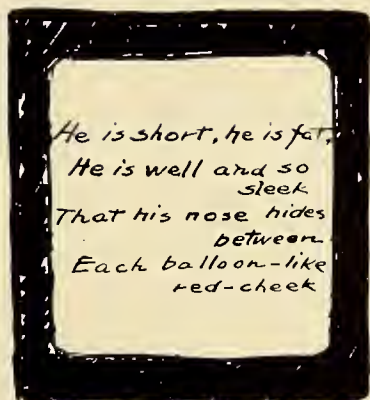 He is short, he is fat,
He is well and so
sleek
That his nose hides
between
Each balloon-like
red-cheek